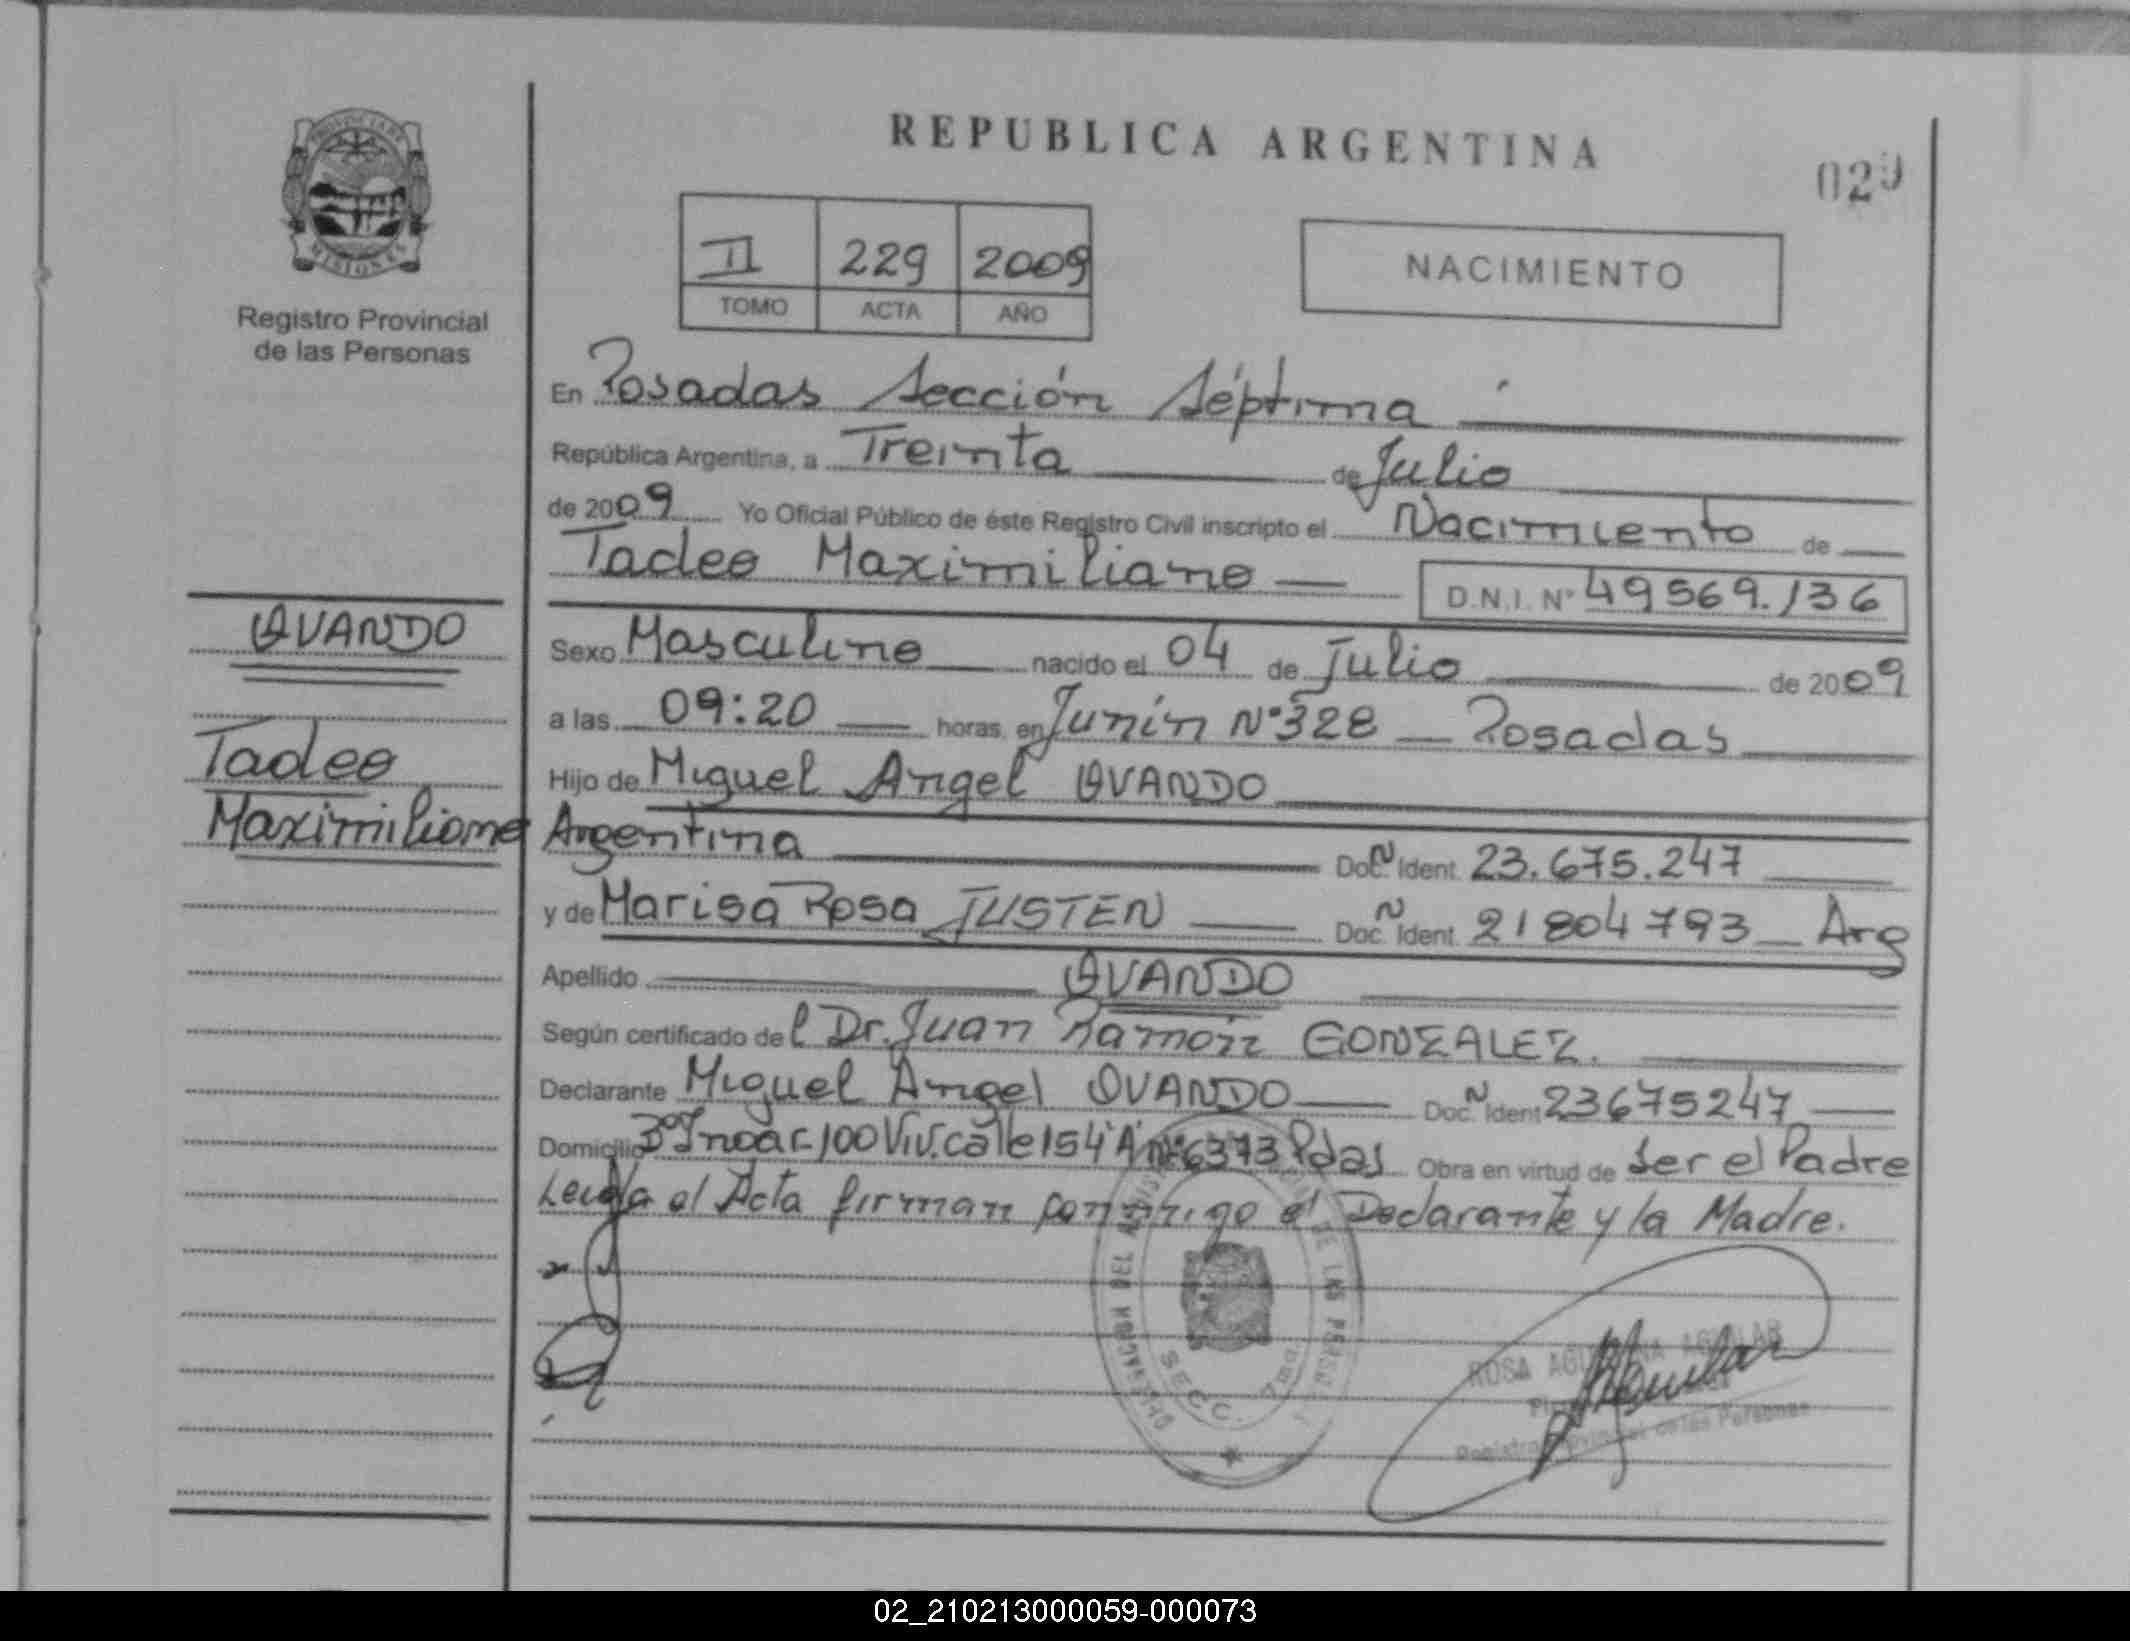 REPUBLICA ARGENTINA
PROVINCIA DE
MISIONES
Registro Provincial
de las Personas
II 229 2009
TOMO ACTA AÑO
NACIMIENTO
En Posadas Sección Séptima
República Argentina, a Treinta de Julio
de 2009 Yo Oficial Público de éste Registro Civil inscripto el Nacimiento de
Tadeo Maximiliano D.N.I. Nº 49569.136
OVANDO
Tadeo
Maximiliano
Sexo Masculino nacido el 04 de Julio de 2009
a las 09:20 horas, en Junín Nº 328 Posadas
Hijo de Miguel Angel OVANDO
Argentina Doc. Ident. 23.675.247
y de Marisa Rosa JUSTEN Doc. Ident. 21804793 Arg
Apellido OVANDO
Según certificado del Dr. Juan Ramón GONZALEZ.
Declarante Miguel Angel OVANDO Doc. Ident. 23675247
Domicilio 100 Viv. calle 154 A Nº 6373 Pdas Obra en virtud de Ser el Padre
Leída el Acta firman conmigo el Declarante y la Madre.
DE LAS
SECC. 7ma
ROSA AGUILAR
Registro Provincial de las Personas
02_210213000059-000073